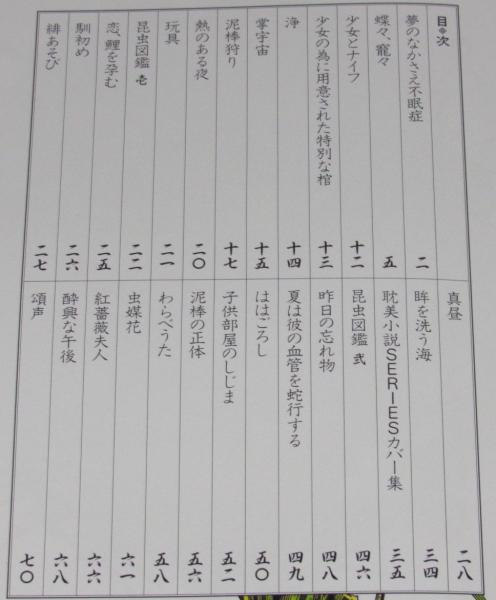 目次
夢のなかさえ不眠症 二
蝶々、寵々 五
少女とナイフ 十二
少女の為に用意された特別な棺 十三
浄 十四
掌宇宙 十五
泥棒狩り 十七
熱のある夜 二〇
玩具 二一
昆虫図鑑 壱 二二
恋、鯉を孕む 二五
馴初め 二六
緋あそび 二七
真昼 二八
眸を洗う海 三四
耽美小説SERIESカバー集 三五
昆虫図鑑 弐 四六
昨日の忘れ物 四八
夏は彼の血管を蛇行する 四九
ははごろし 五〇
子供部屋のしじま 五二
泥棒の正体 五六
わらべうた 五八
虫媒花 六一
紅薔薇夫人 六六
酔興な午後 六八
頌声 七〇